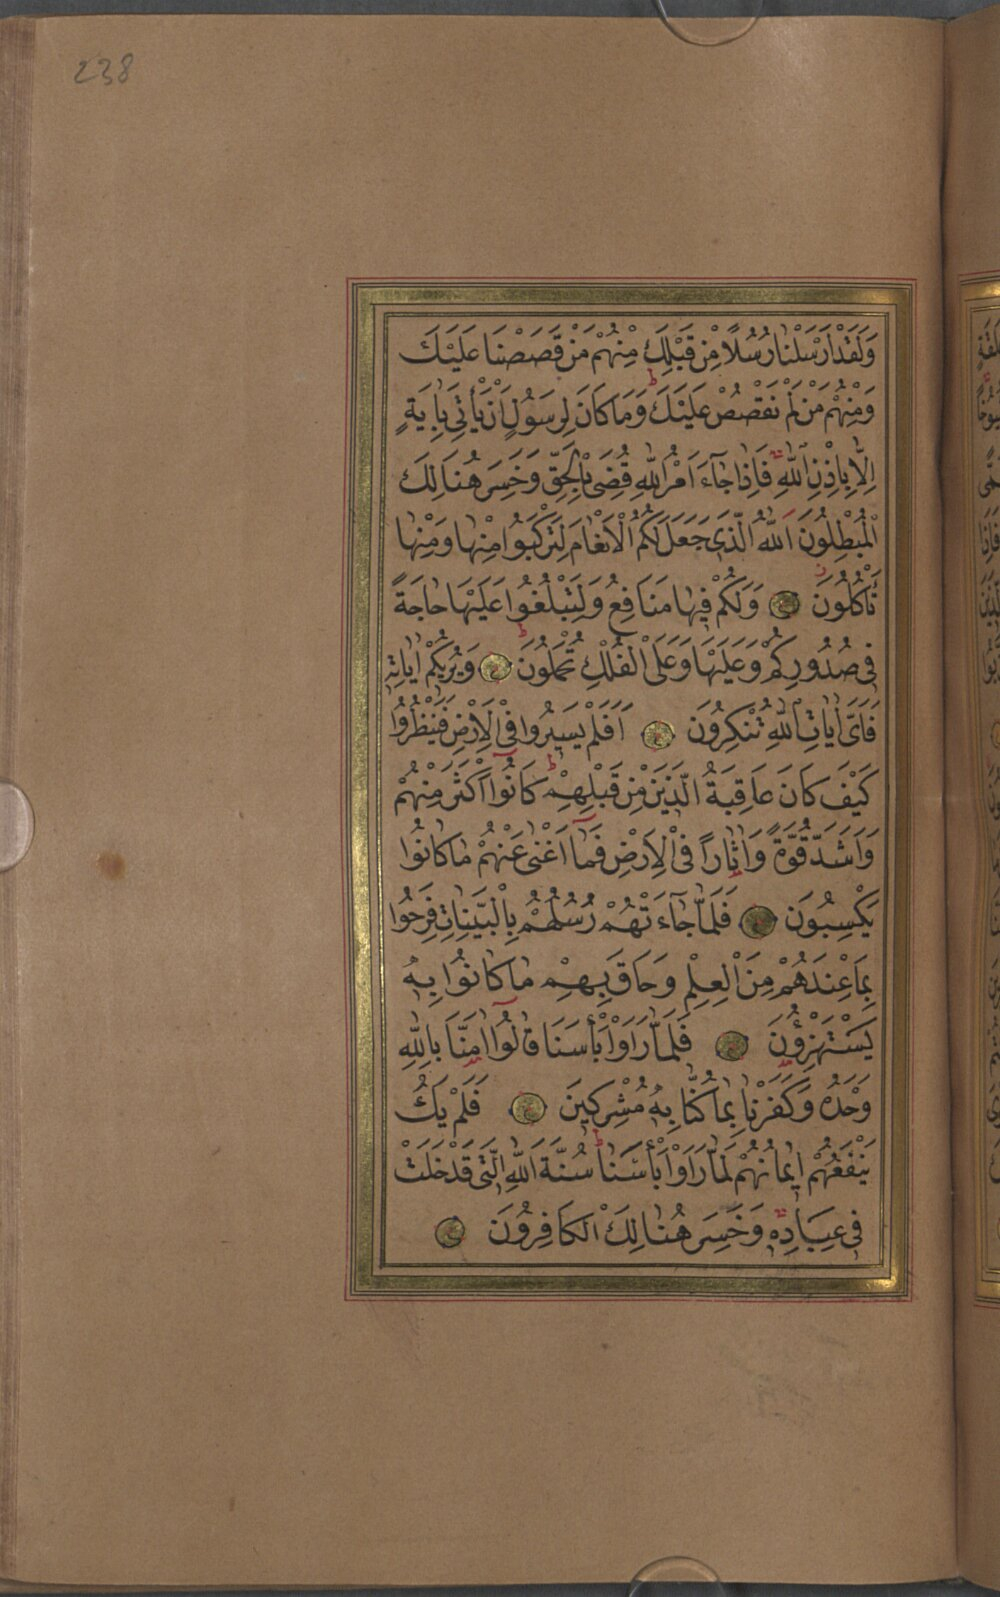 238
وَلَقَدْ اَرْسَلْنَا رُسُلًا مِنْ قَبْلِكَ مِنْهُمْ مَنْ قَصَصْنَا عَلَيْكَ
وَمِنْهُمْ مَنْ لَمْ نَقْصُصْ عَلَيْكَ وَمَا كَانَ لِرَسُولٍ اَنْ يَأْتِيَ بِاٰيَةٍ
اِلَّا بِاِذْنِ اللّٰهِ فَاِذَا جَٓاءَ اَمْرُ اللّٰهِ قُضِىَ بِالْحَقِّ وَخَسِرَ هُنَالِكَ
الْمُبْطِلُونَ اَللّٰهُ الَّذِى جَعَلَ لَكُمُ الْاَنْعَامَ لِتَرْكَبُوا مِنْهَا وَمِنْهَا
تَأْكُلُونَ وَلَكُمْ فِيهَا مَنَافِعُ وَلِتَبْلُغُوا عَلَيْهَا حَاجَةً
فِى صُدُورِكُمْ وَعَلَيْهَا وَعَلَى الْفُلْكِ تُحْمَلُونَ وَيُرِيكُمْ اٰيَاتِهِ
فَاَىَّ اٰيَاتِ اللّٰهِ تُنْكِرُونَ اَفَلَمْ يَسِيرُوا فِى الْاَرْضِ فَيَنْظُرُوا
كَيْفَ كَانَ عَاقِبَةُ الَّذِينَ مِنْ قَبْلِهِمْ كَانُوا اَكْثَرَ مِنْهُمْ
وَاَشَدَّ قُوَّةً وَاٰثَارًا فِى الْاَرْضِ فَمَا اَغْنٰى عَنْهُمْ مَا كَانُوا
يَكْسِبُونَ فَلَمَّا جَٓاءَتْهُمْ رُسُلُهُمْ بِالْبَيِّنَاتِ فَرِحُوا
بِمَا عِنْدَهُمْ مِنَ الْعِلْمِ وَحَاقَ بِهِمْ مَا كَانُوا بِهِ
يَسْتَهْزِؤُنَ فَلَمَّا رَاَوْا بَأْسَنَا قَالُوا اٰمَنَّا بِاللّٰهِ
وَحْدَهُ وَكَفَرْنَا بِمَا كُنَّا بِهِ مُشْرِكِينَ فَلَمْ يَكُ
يَنْفَعُهُمْ اِيمَانُهُمْ لَمَّا رَاَوْا بَأْسَنَا سُنَّةَ اللّٰهِ الَّتِى قَدْ خَلَتْ
فِى عِبَادِهِ وَخَسِرَ هُنَالِكَ الْكَافِرُونَ